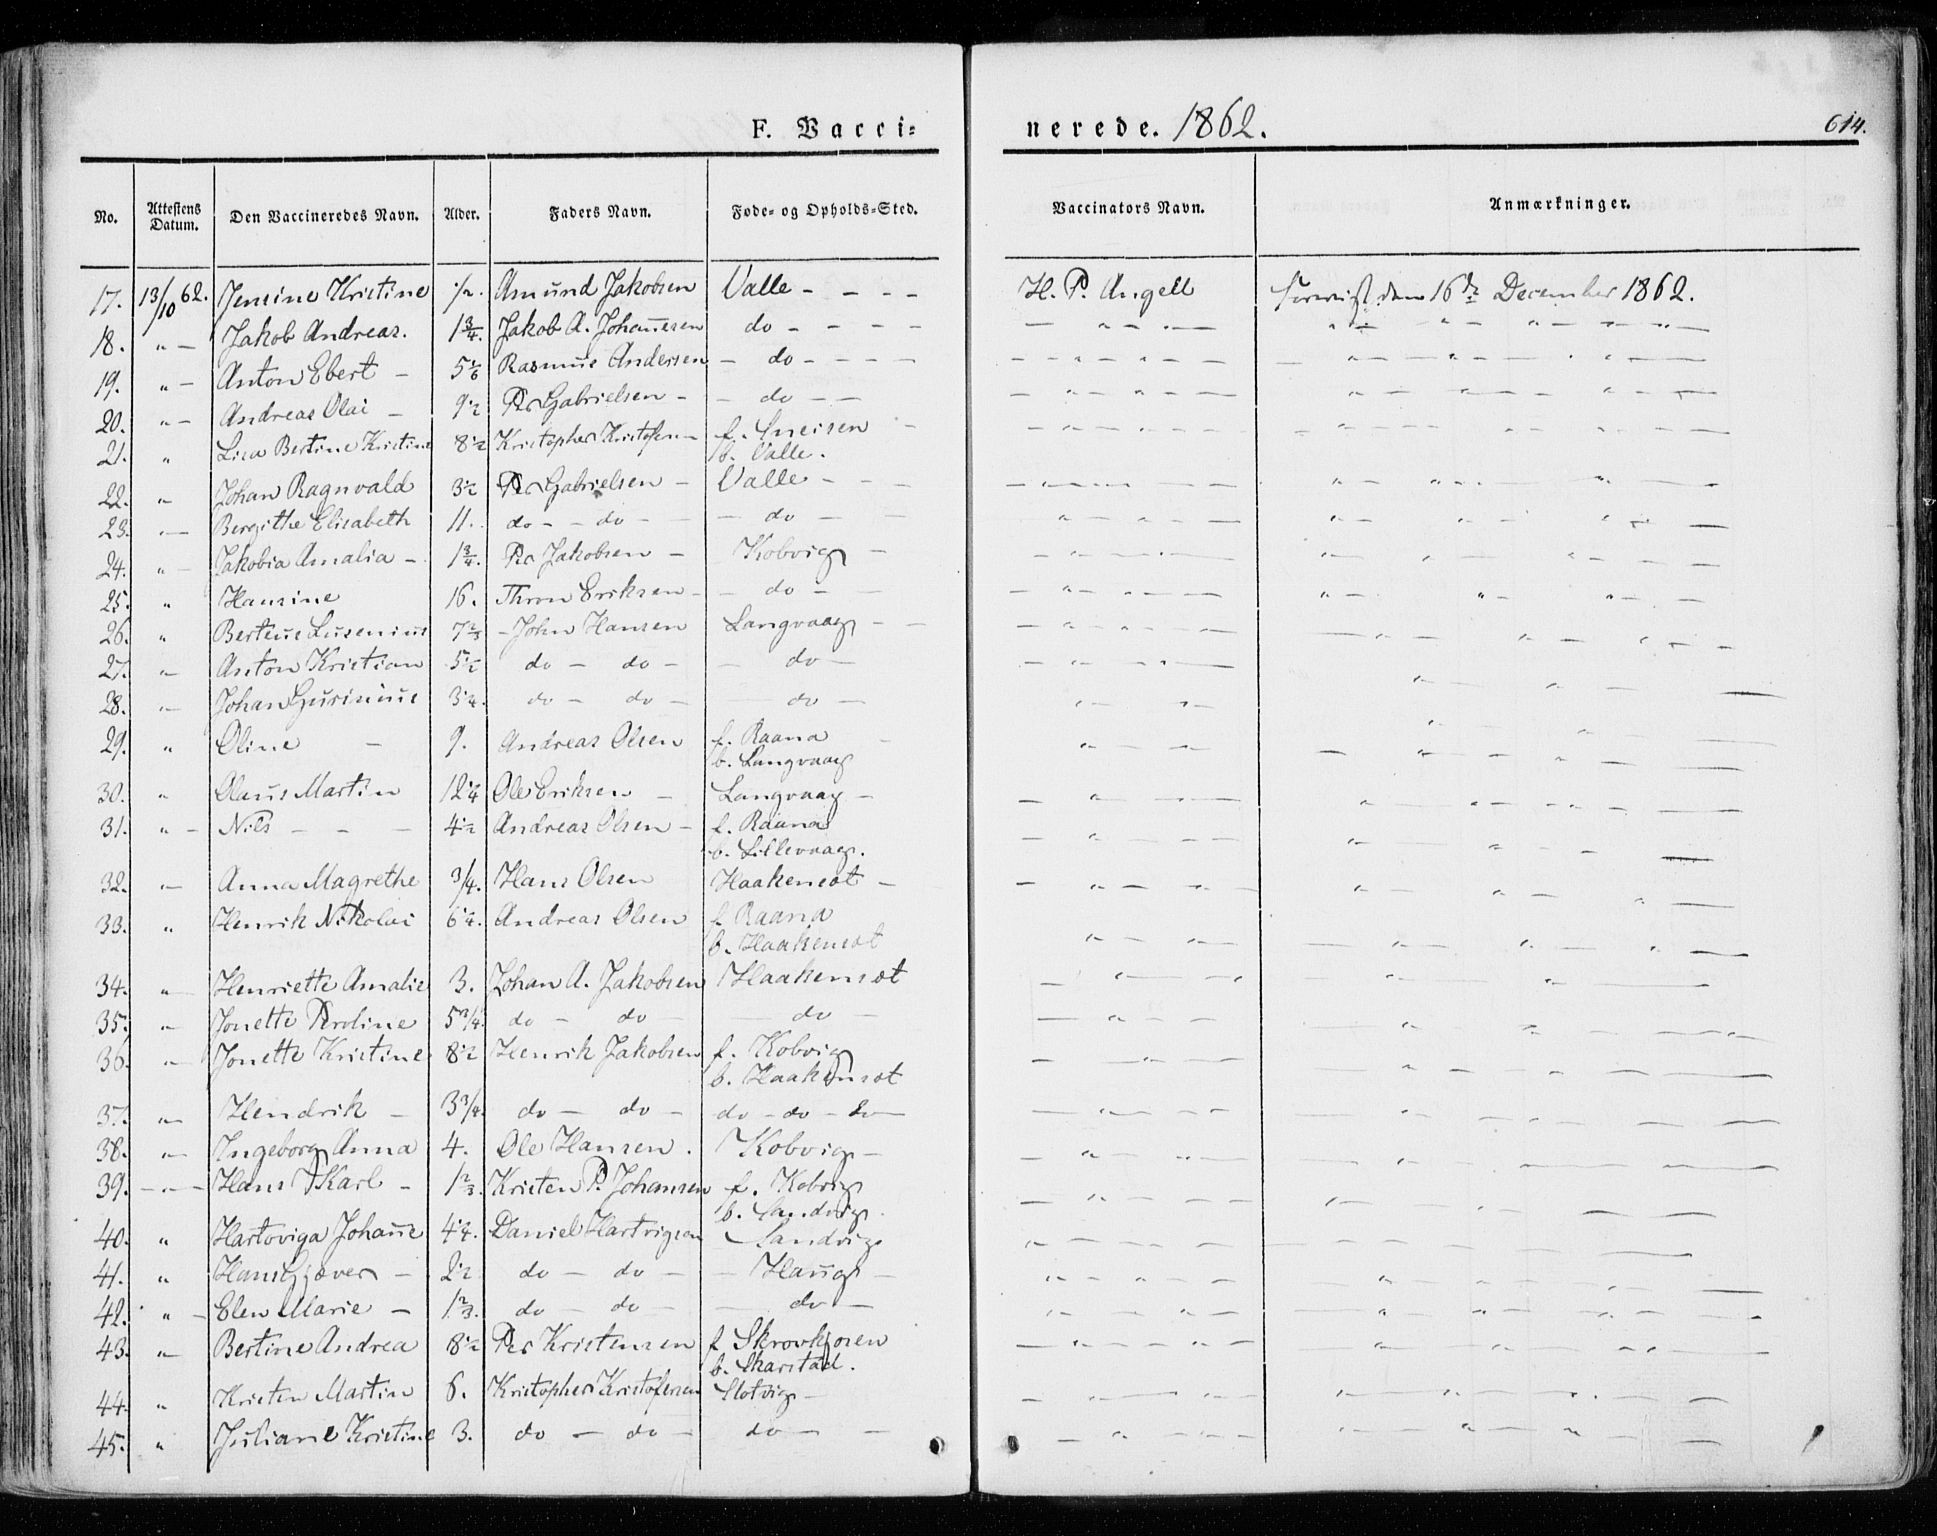 F. Vacci=
nerede. 1862.
614.
No. Attestens Datum. Den Vaccineredes Navn. Alder. Faders Navn. Føde= og Opholds=Sted. Vaccinators Navn. Anmærkninger.
17. 13/10 62. Jensine Kristine 1/2. Amund Jakobsen Valle - - - - H. P. Angell den 16de December 1862.
18. " - Jakob Andreas. 1 3/4. Jakob A. Johannesen do - - - -
19. " - Anton Ebert - 5 1/6 Rasmus Andersen - do - - -
20. " - Andreas Olai - 9 1/2 Per Gabrielsen - - do - -
21. " Lisa Bertine Kristine 8 1/2 Kristopher Kristofersen f. Sneisen
b. Valle.
22. " - Johan Ragnvald 3 1/2 Per Gabrielsen - Valle - - -
23. " - Bergithe Elisabeth 11. do - - do - - do - -
24. " - Jakobia Amalia - 1 3/4. Per Jakobsen - Kobvig -
25. " Hansine 16. Thron Eriksen - - do - -
26. " Berteus Lusenius 7 2/3 - John Hansen Langvaag - -
27. " - Anton Kristian 5 1/2 do - do - - do -
28. " - Johan 3 1/4. do - do - - do -
29. " Oline - 9. Andreas Olsen f. Raana -
b. Langvaag
30. " Olaus Martin 12 1/4 Ole Eriksen - Langvaag -
31. " - Nils - - - 4 1/2 Andreas Olsen - f. Raana
b. Lillevaag.
32. " - Anna Magrethe 3/4. Hans Olsen Haakensøt -
33. " Henrik Nikolai 6 1/4. Andreas Olsen f. Raana
b. Haakensøt
34. " - Henriette Amalie 3. Johan A. Jakobsen Haakensøt
35. " - Jonette Peroline 5 3/4. do - do - - do -
36. " - Jonette Kristine 8 1/2 Henrik Jakobsen f. Kobvig
b. Haakensøt
37. " - Hendrik - 3 3/4. do - do - do - do - do -
38. " - Ingeborg Anna 4. Ole Hansen. Kobvig -
39. - " - Hans Karl - 1 2/3. Kristen P. Johansen f. Kobvig
b. Sandvig.
40. " Hartoviga Johanne 4 1/4. Daniel Hartvigsen Sandvig
41. " Hans Gjæver - 2 1/2 do - do - - Haug -
42. " - Elen Marie - 1 2/3. do - do - - do -
43. " - Bertine Andrea 8 1/2 Per Kristensen f. Skrovkjosen
b. Skarstad.
44. " Kristen Martin 6. Kristopher Kristofersen Slotvig -
45. " Juliane Kristine 3. do - do - do - -